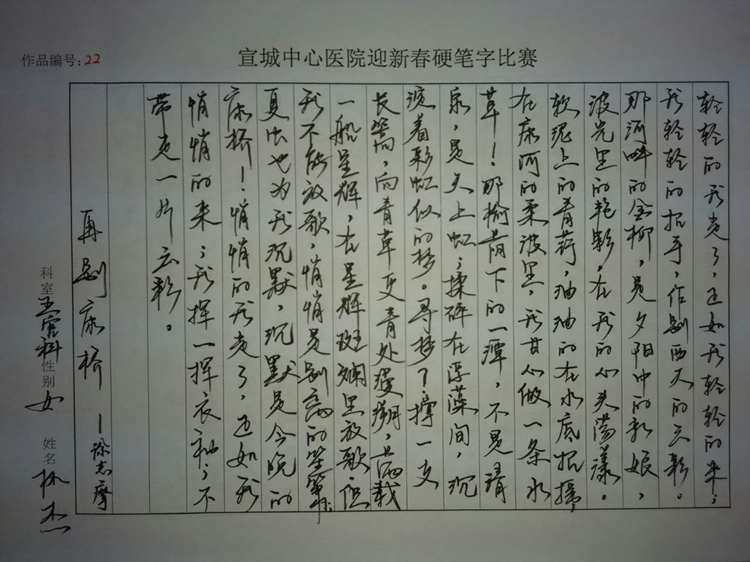 作品编号:22
宣城中心医院迎新春硬笔字比赛
轻轻的我走了,正如我轻轻的来;
我轻轻的招手,作别西天的云彩。
那河畔的金柳,是夕阳中的新娘,
波光里的艳影,在我的心头荡漾。
软泥上的青荇,油油的在水底招摇
在康河的柔波里,我甘心做一条水
草!那榆荫下的一潭,不是清
泉,是天上虹;揉碎在浮藻间,沉
淀着彩虹似的梦。寻梦?撑一支
长篙,向青草更青处漫溯,满载
一船星辉,在星辉斑斓里放歌。但
我不能放歌,悄悄是别离的笙箫;
夏虫也为我沉默,沉默是今晚的
康桥!悄悄的我走了,正如我
悄悄的来;我挥一挥衣袖,不
带走一片云彩。
再别康桥 —徐志摩
科室 五官科 性别 女 姓名 林杰